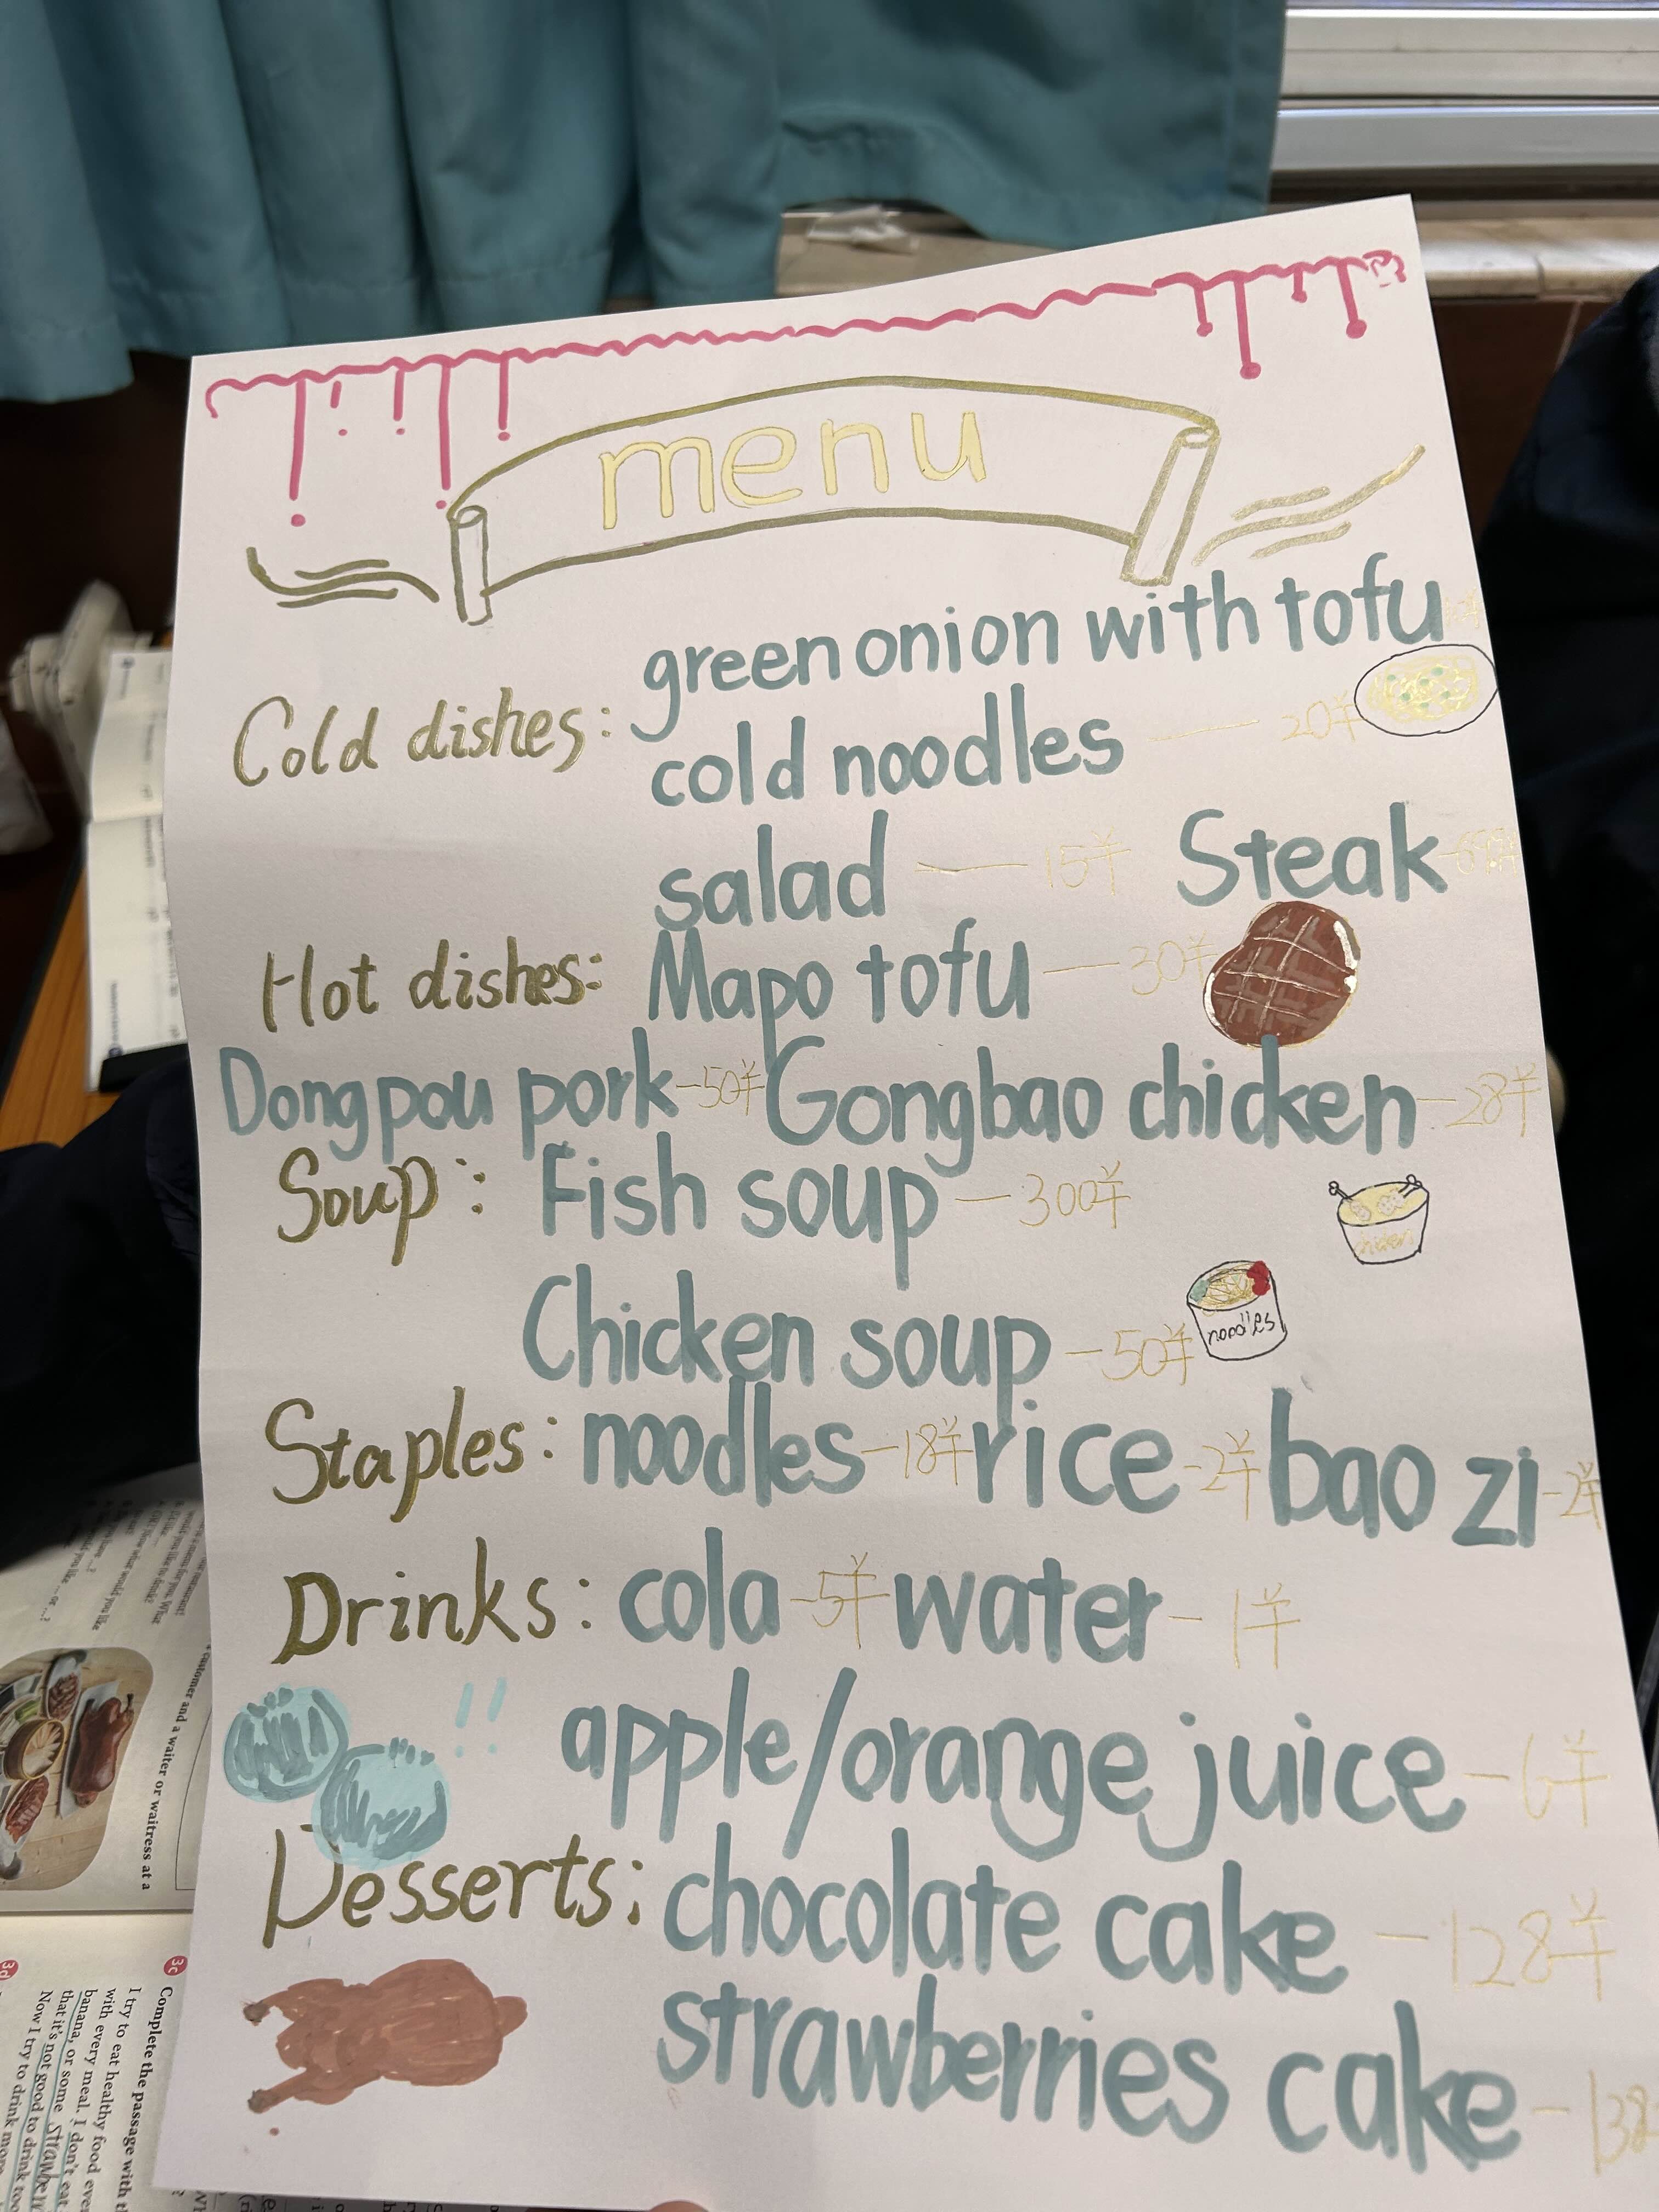 menu
green onion with tofu
Cold dishes: cold noodles — 20¥
salad — 15¥ Steak
Hot dishes: Mapo tofu — 30¥
Dongpou pork -50¥ Gongbao chicken -28¥
Soup: Fish soup — 300¥
chicken
Chicken soup -50¥
noodles
Staples: noodles -18¥ rice -2¥ bao zi -2¥
Drinks: cola -5¥ water - 1¥
!!
apple/orange juice -6¥
Desserts: chocolate cake -128¥
strawberries cake -138
customer and a waiter or waitress at a
3c Complete the passage with
I try to eat healthy food
with every meal. I don't eat
banana, or some strawber
that it's not good to drink too
Now I try to drink more
3d